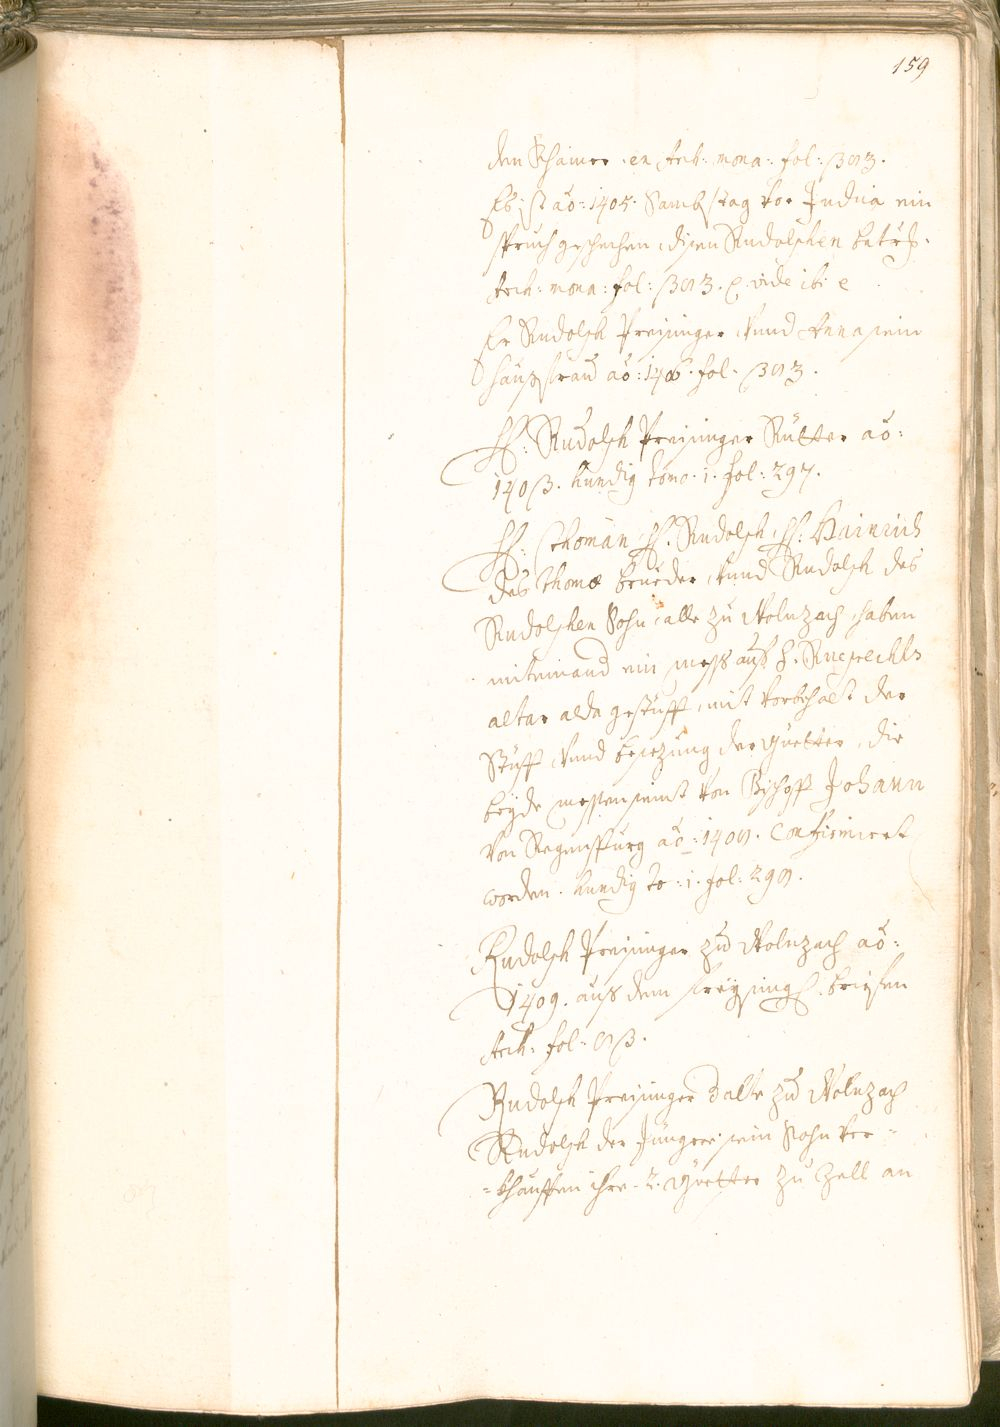 159
den Schainer. en Arch: mona: fol: 393.
Es ist aō: 1405. Sambstag vor Judica ein
spruch geschechen, disen Rudolphen betrf.
Arch: mona: fol: 393. vide ibi
Er Rudolph Preisinger, vnnd Anna sein
haußfrau aō: 1406. fol. 393.
H: Rudolph Preisinger Ritter aō:
1408. hundig tomo. 1. fol: 297.
H: Thoman, H: Rudolph, H: Hainrich
des Thomæ brueder, vnnd Rudolph des
Rudolphen Sohn, alle zu Wolnzach, haben
miteinand ein mess auf S. Rueprechts
altar alda gestifft, mit vorbehalt der
Stifft, vnnd besezung der güetter, die
beyde messen seint von Bischoff Johann
von Regenspurg aō: 1409. Confirmiert
worden. hundig to: 1. fol: 299.
Rudolph Preisinger zu Wolnzach aō:
1409. auß dem freysing. briefen
Arch: fol: 98.
Rudolph Preisinger d alte zu Wolnzach
Rudolph der Jünger sein Sohn ver-
-khauffen ihre 2. güetter zu Zell an